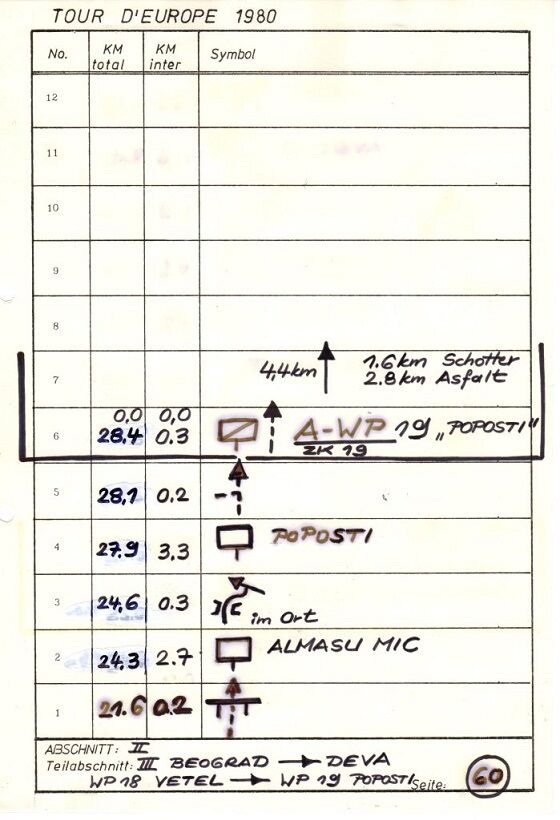 TOUR D'EUROPE 1980
No. KM total KM inter Symbol
12
11
10
9
8
7 4,4km 1.6km Schotter
2.8km Asfalt
0,0 0,0
6 28.4 0.3 A-WP 19 „POPOSTI"
ZK 19
5 28,1 0.2
4 27.9 3,3 POPOSTI
3 24,6 0.3 im Ort
2 24.3 2.7 ALMASU MIC
1 21.6 0.2
ABSCHNITT: II
Teilabschnitt: III BEOGRAD → DEVA
WP 18 VETEL → WP 19 POPOSTI Seite: 60